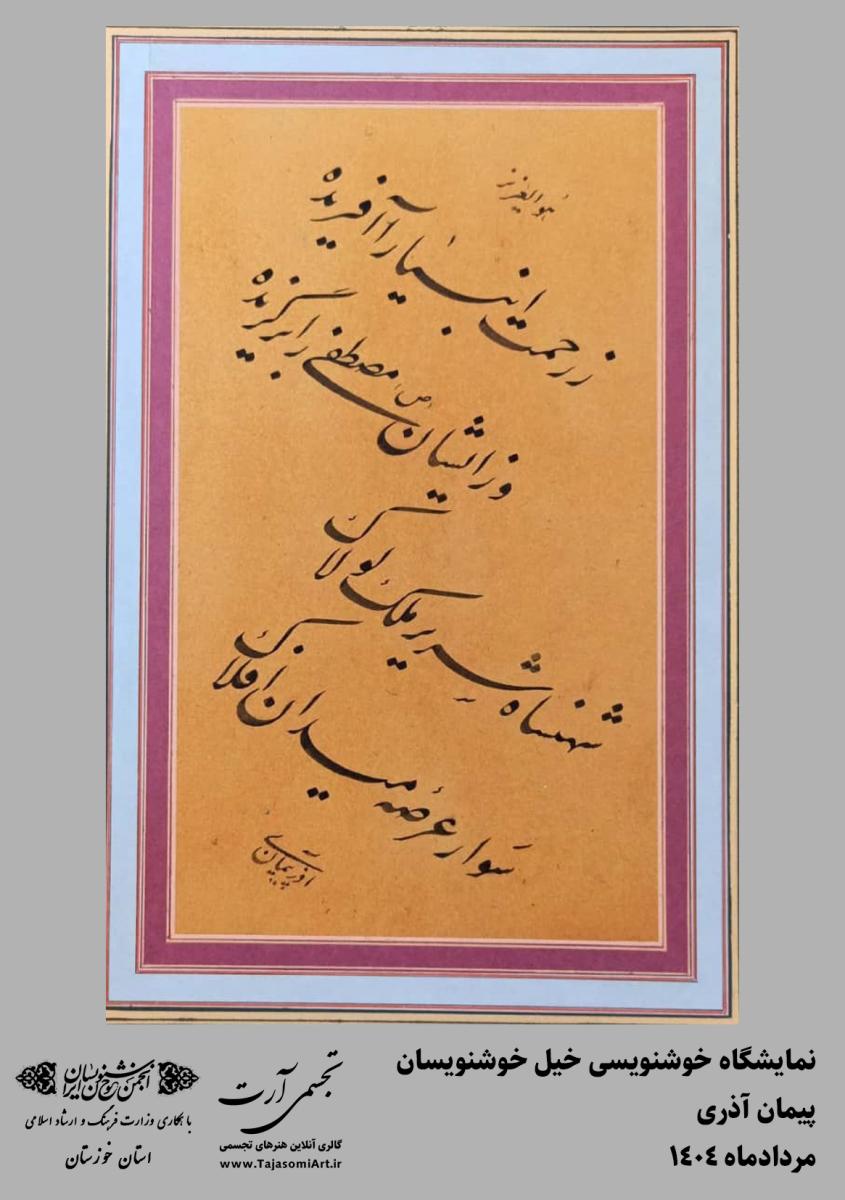 هوالعزیز
ز رحمت انبیا را آفریده
وز ایشان مصطفی (ص) را برگزیده
شهنشاه سریر ملک لولاک
سوار عرصهٔ میدان افلاک
پیمان آذری
نمایشگاه خوشنویسی خیل خوشنویسان
پیمان آذری
مردادماه ۱۴۰۴
تجسمی آرت
گالری آنلاین هنرهای تجسمی
www.TajasomiArt.ir
انجمن خوشنویسان ایران
با همکاری وزارت فرهنگ و ارشاد اسلامی
استان خوزستان